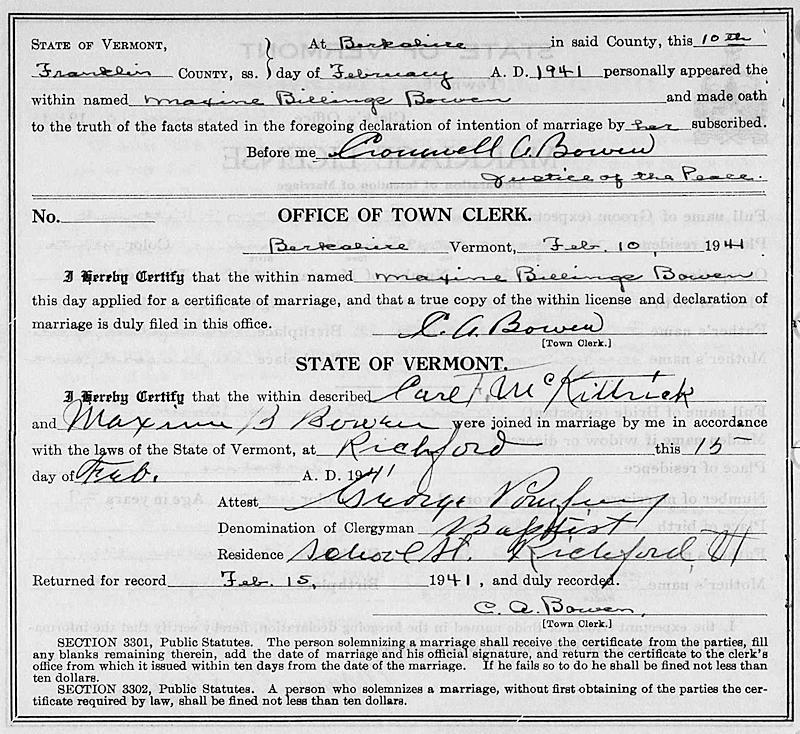 STATE OF VERMONT, At Berkshire in said County, this 10th
Franklin COUNTY, ss. day of February A. D. 1941 personally appeared the
within named Maxine Billings Bowen and made oath
to the truth of the facts stated in the foregoing declaration of intention of marriage by her subscribed.
Before me Cromwell A. Bowen
Justice of the Peace.
No. OFFICE OF TOWN CLERK.
Berkshire Vermont, Feb. 10, 1941
I Hereby Certify that the within named Maxine Billings Bowen
this day applied for a certificate of marriage, and that a true copy of the within license and declaration of
marriage is duly filed in this office. C. A. Bowen
[Town Clerk.]
STATE OF VERMONT.
I Hereby Certify that the within described Carl F. McKittrick
and Maxine B Bowen were joined in marriage by me in accordance
with the laws of the State of Vermont, at Richford this 15
day of Feb. A. D. 1941
Attest George
Denomination of Clergyman Baptist
Residence School St. Richford, Vt
Returned for record Feb. 15, 1941, and duly recorded.
C. A. Bowen,
[Town Clerk.]
SECTION 3301, Public Statutes. The person solemnizing a marriage shall receive the certificate from the parties, fill
any blanks remaining therein, add the date of marriage and his official signature, and return the certificate to the clerk's
office from which it issued within ten days from the date of the marriage. If he fails so to do he shall be fined not less than
ten dollars.
SECTION 3302, Public Statutes. A person who solemnizes a marriage, without first obtaining of the parties the cer-
tificate required by law, shall be fined not less than ten dollars.